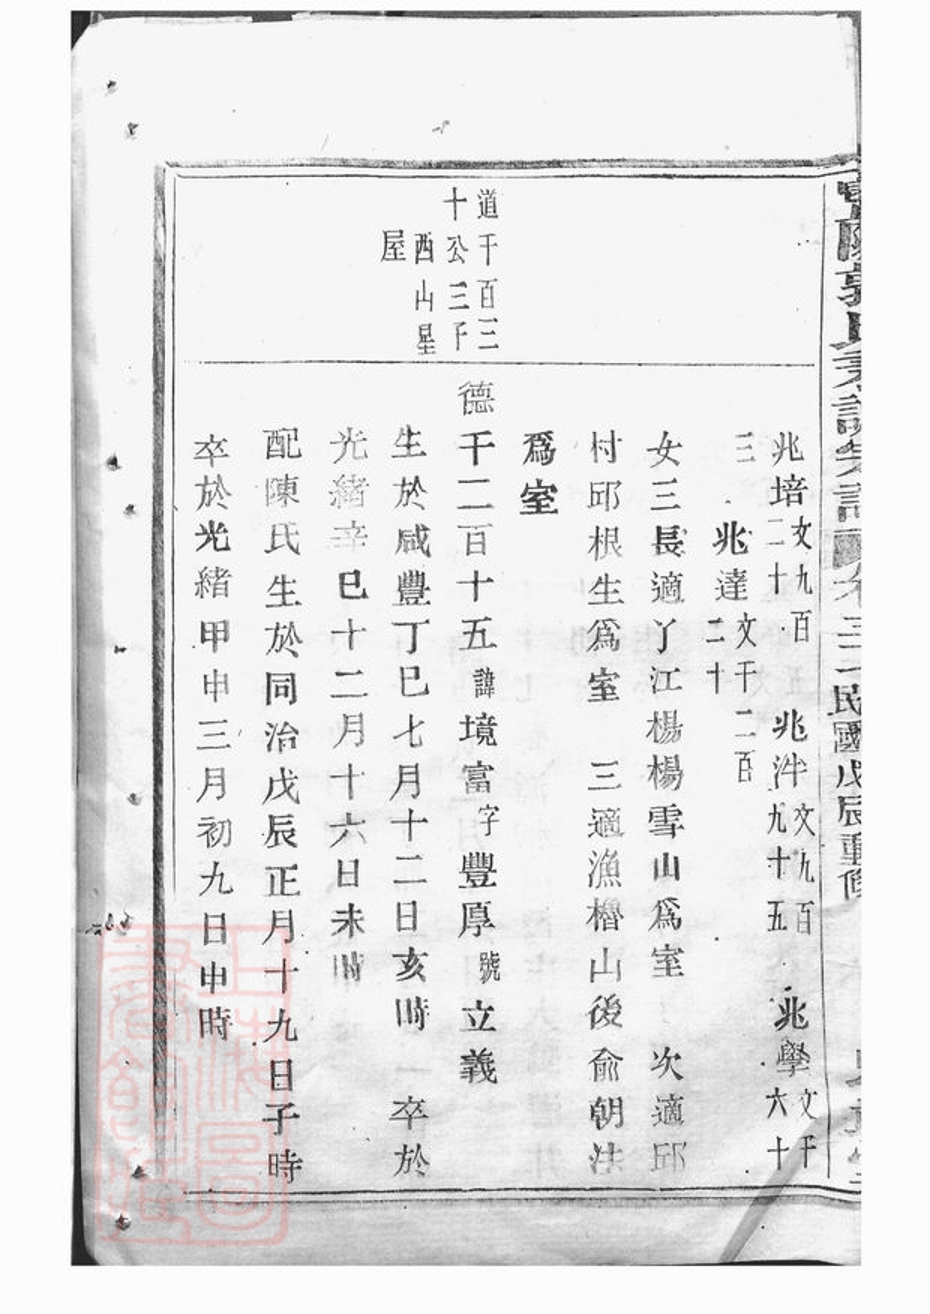 民國戊辰重修
兆培文九百二十 兆泮文九百九十五 兆學文千六十
三 兆達文千二百二十
女三長適丫江楊楊雪山爲室 次適邱
村邱根生爲室 三適漁櫓山後俞朝法
爲室
道千百三
十公三子
西山星
屋
德千二百十五諱境富字豐厚號立義
生於咸豐丁巳七月十二日亥時 卒於
光緒辛巳十二月十六日未時
配陳氏生於同治戊辰正月十九日子時
卒於光緒甲申三月初九日申時